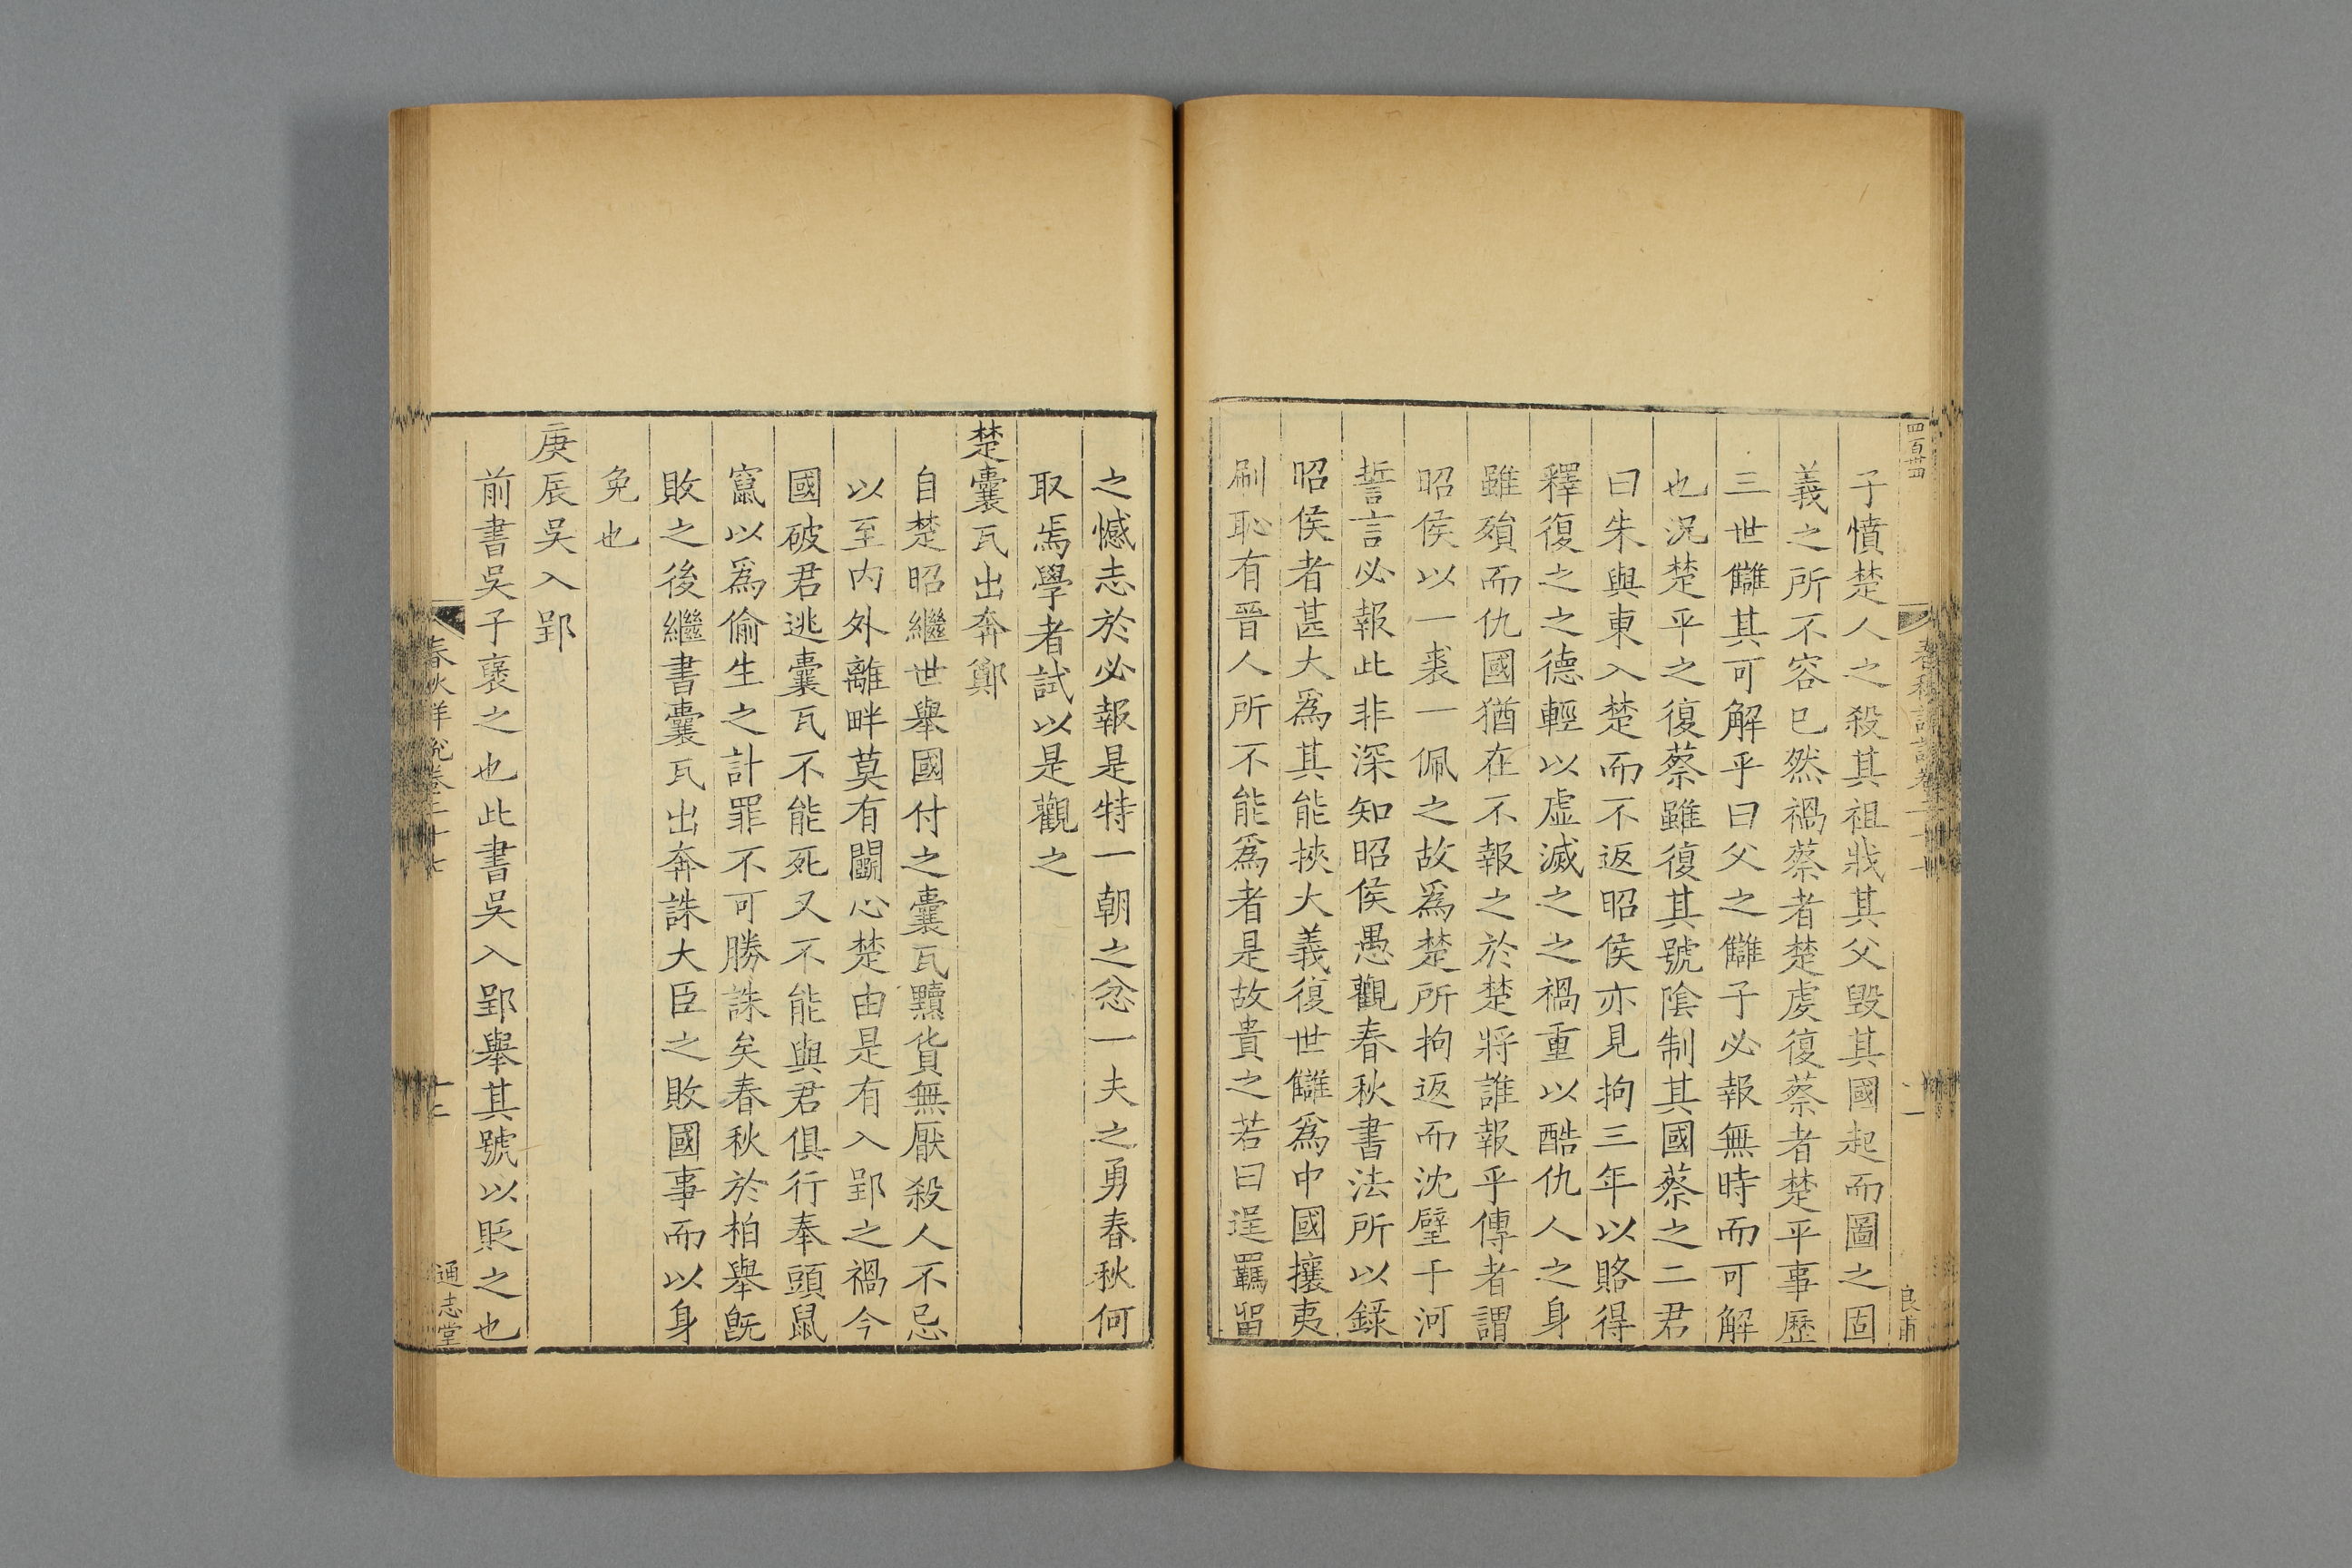 四百卅四
良甫
子憤楚人之殺其祖戕其父毀其國起而圖之固
義之所不容已然禍蔡者楚虔復蔡者楚平事歷
三世讎其可解乎曰父之讎子必報無時而可解
也況楚平之復蔡雖復其號隂制其國蔡之二君
曰朱與東入楚而不返昭侯亦見拘三年以賂得
釋復之之德輕以虛滅之之禍重以酷仇人之身
雖殞而仇國猶在不報之於楚將誰報乎傳者謂
昭侯以一裘一佩之故爲楚所拘返而沈璧于河
誓言必報此非深知昭侯愚觀春秋書法所以錄
昭侯者甚大爲其能挾大義復世讎爲中國攘夷
刷恥有晉人所不能爲者是故貴之若曰逞羈留
之憾志於必報是特一朝之忿一夫之勇春秋何
取焉學者試以是觀之
楚囊瓦出奔鄭
自楚昭繼世舉國付之囊瓦黷貨無厭殺人不忌
以至内外離畔莫有鬬心楚由是有入郢之禍今
國破君逃囊瓦不能死又不能與君俱行奉頭鼠
竄以爲偷生之計罪不可勝誅矣春秋於柏舉旣
敗之後繼書囊瓦出奔誅大臣之敗國事而以身
免也
庚辰吳入郢
前書吳子褒之也此書吳入郢舉其號以貶之也
春秋詳說卷二十七
通志堂